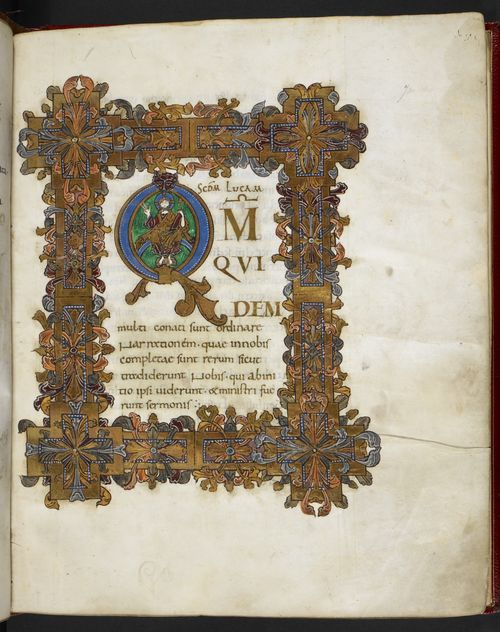 SCDM LUCAM
Q M̅
QVI
DEM
multi conati sunt ordinare
Narrationem· quae innobis
completae sunt rerum sicut
tradiderunt Nobis· qui abini
tio ipsi uiderunt· &ministri fue
runt sermonis